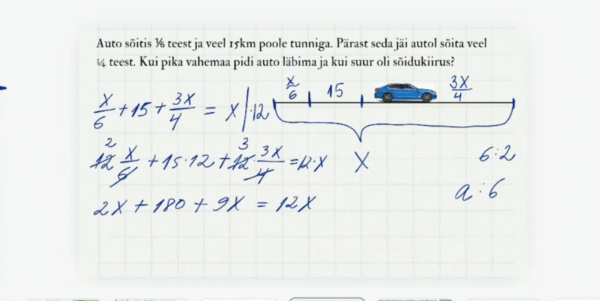 Auto sõitis ⅙ teest ja veel 15km poole tunniga. Pärast seda jäi autol sõita veel
¼ teest. Kui pika vahemaa pidi auto läbima ja kui suur oli sõidukiirus?
x/6 15 3x/4
x/6 + 15 + 3x/4 = x |·12
2 3
12 · x/6 + 15·12 + 12 · 3x/4 = 12·x
x
6:2
2x + 180 + 9x = 12x
a:6